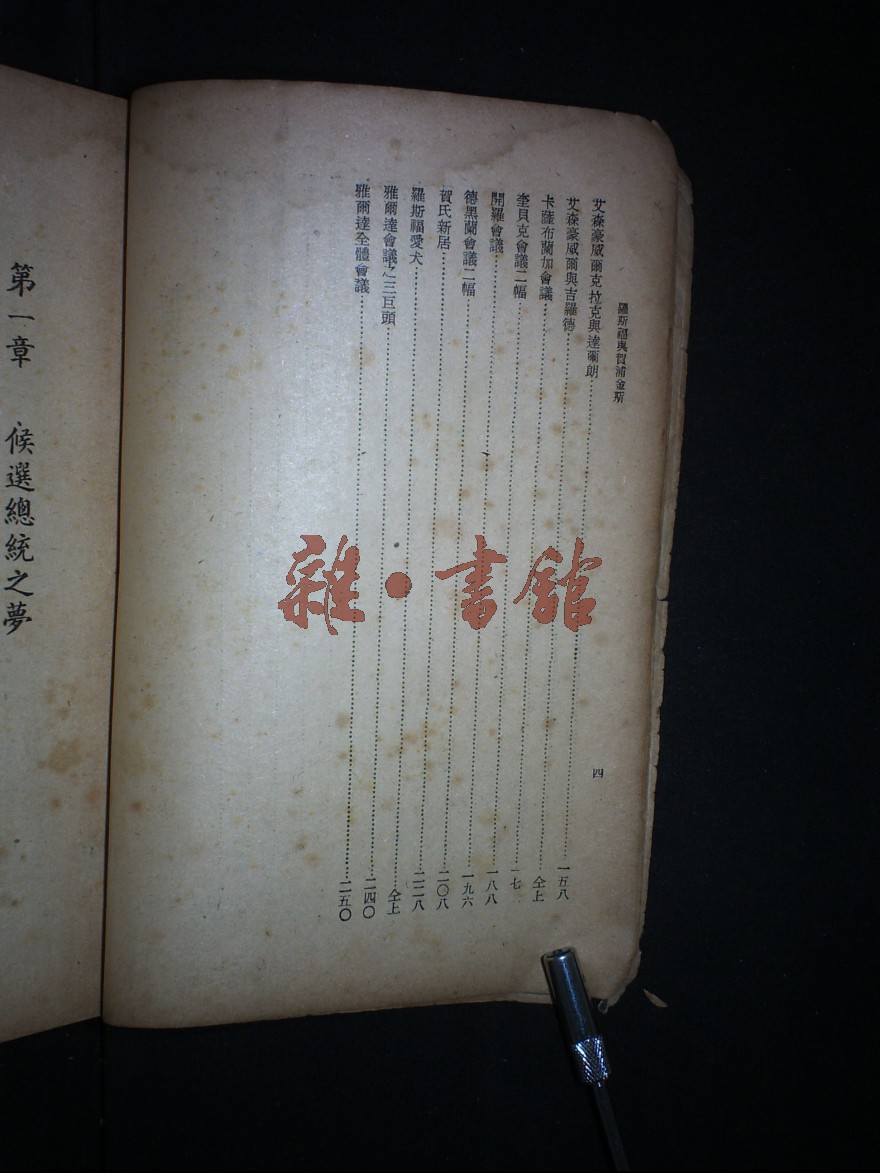 羅斯福與賀浦金斯 四
艾森豪威爾克拉克與達爾朗 一五八
艾森豪威爾與吉羅德 仝上
卡薩布蘭加會議 一七
奎貝克會議二幅 一八八
開羅會議 一九六
德黑蘭會議二幅 二〇八
賀氏新居 二二八
羅斯福愛犬 仝上
雅爾達會議之三巨頭 二四〇
雅爾達全體會議 二五〇
第一章 候選總統之夢
雜·書館